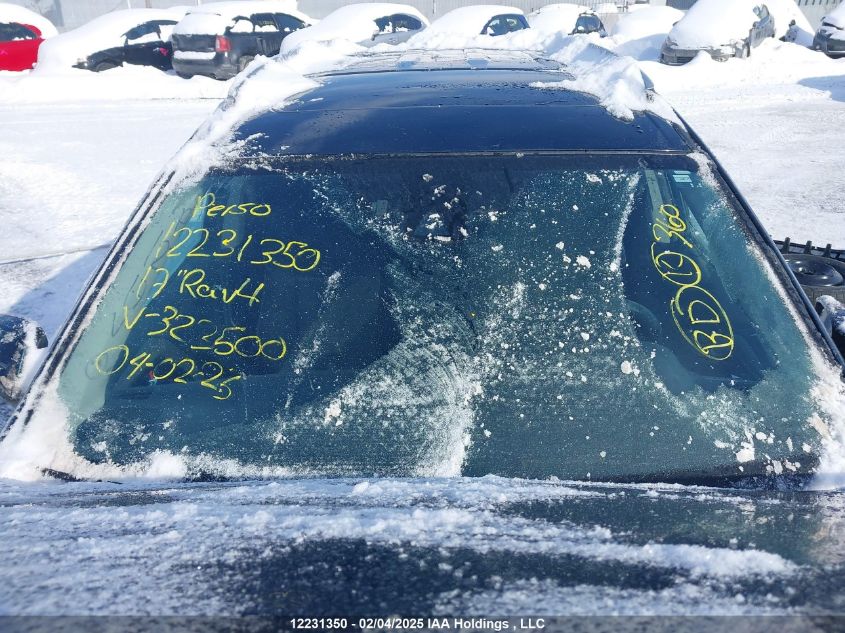 Perso
12231350
17' Rav4
V-322500
04-02-25
360
19
BD
12231350 - 02/04/2025 IAA Holdings , LLC